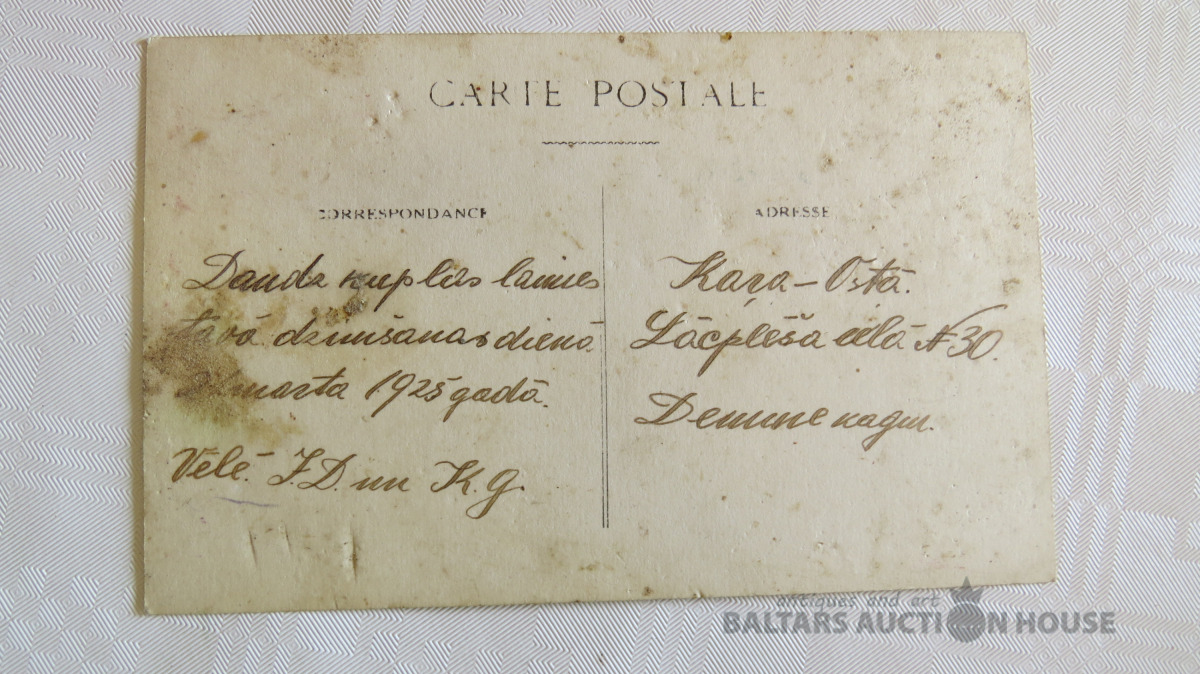 CARTE POSTALE
CORRESPONDANCE
Daudz kuplas laimes
tavā dzimšanas dienā
marta 1925 gadā.
Vēlē. J.D. un K.G.
ADRESSE
Kaŗa-Ostā.
Lāčplēša ielā № 30.
antiques and art
BALTARS AUCTION HOUSE